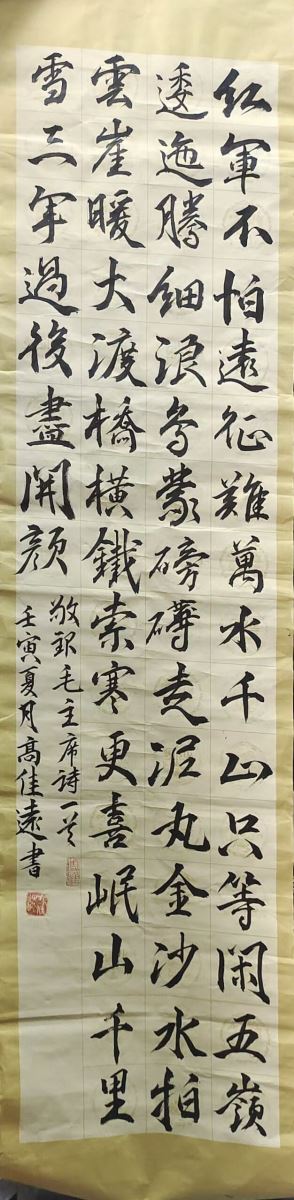 紅軍不怕遠征難萬水千山只等閑五嶺
逶迤騰細浪烏蒙磅礴走泥丸金沙水拍
雲崖暖大渡橋橫鐵索寒更喜岷山千里
雪三軍過後盡開顏
敬錄毛主席詩一首
壬寅夏月高佳遠書